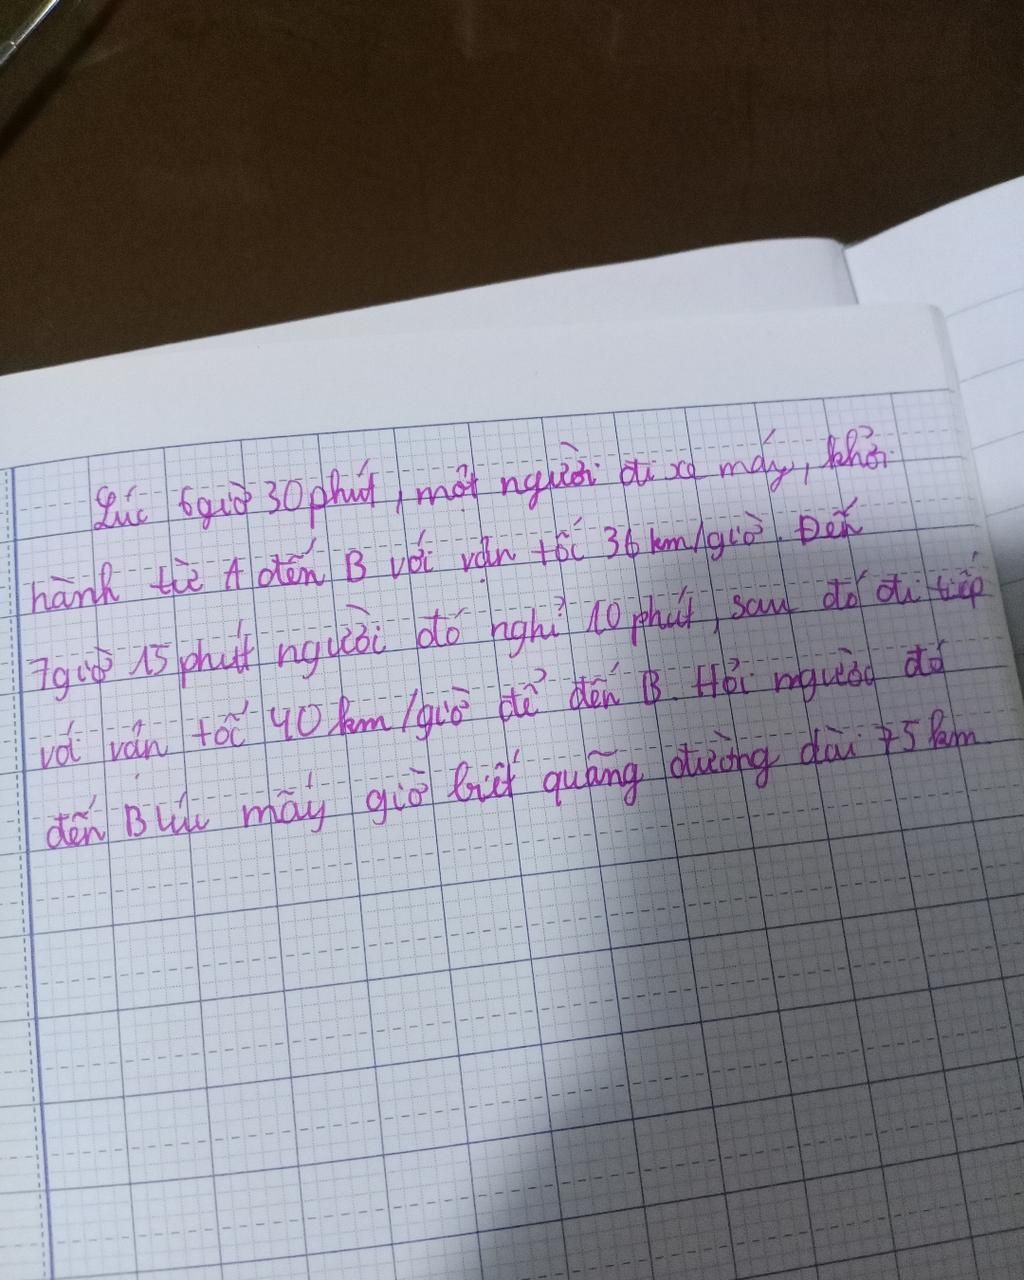 Lúc 6giờ 30phút, một người đi xe máy, khởi
hành từ A đến B với vận tốc 36 km/giờ. Đến
7giờ 15phút người đó nghỉ 10 phút, sau đó đi tiếp
với vận tốc 40 km/giờ để đến B. Hỏi người đó
đến B lúc mấy giờ biết quãng đường dài 75 km